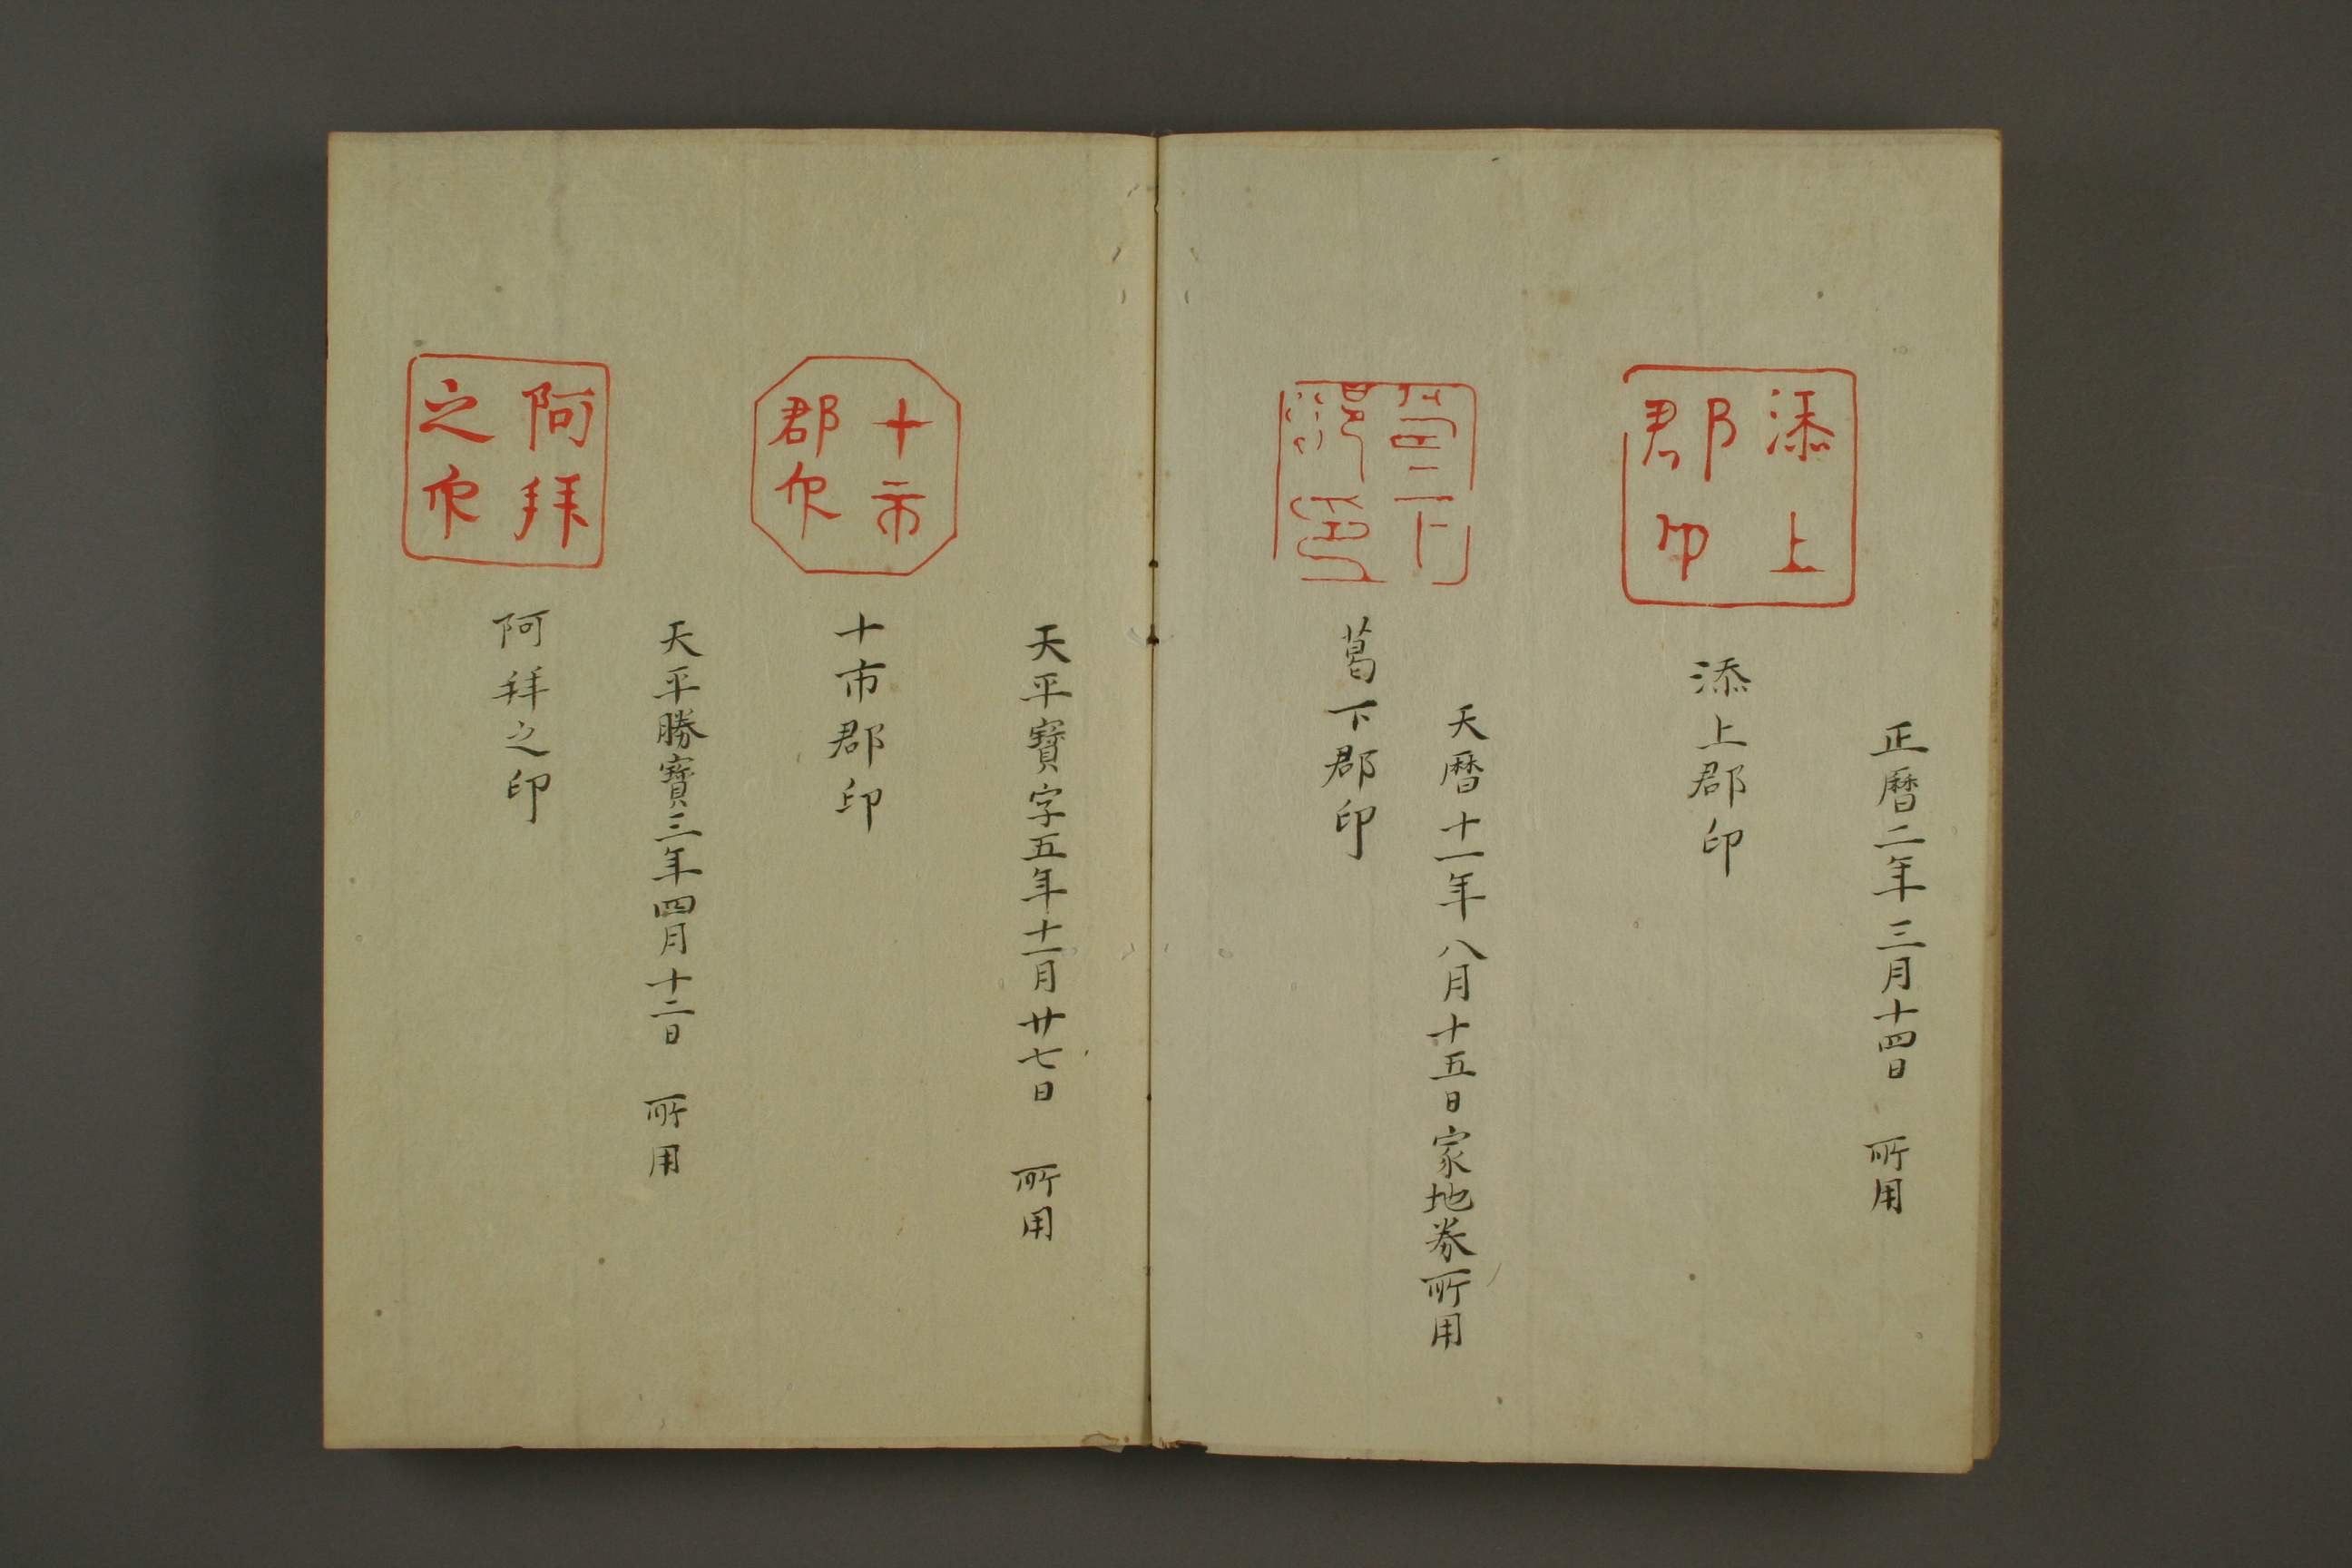 添上
郡印
添上郡印
正暦二年三月十四日　所用
葛下
郡印
葛下郡印
天暦十一年八月十五日家地券所用
十市
郡印
十市郡印
天平寳字五年十一月廿七日　所用
阿拜
之印
阿拜之印
天平勝寳三年四月十二日　所用